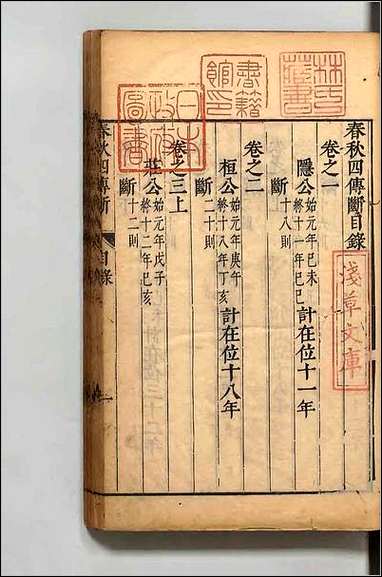 春秋四傳斷目錄
卷之一
隱公始元年己未終十一年己巳計在位十一年
斷十八則
卷之二
桓公始元年庚午終十八年丁亥計在位十八年
斷二十則
卷之三上
莊公始元年戊子終十二年己亥
斷十二則
春秋四傳斷
目錄
林氏藏書
書籍館印
日本政府圖書
淺草文庫